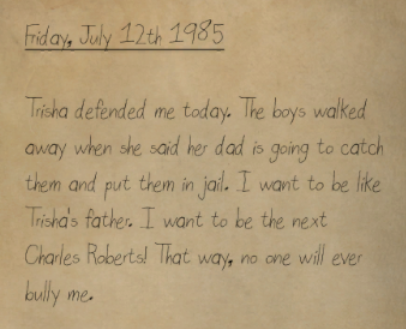 Friday, July 12th 1985
Trisha defended me today. The boys walked
away when she said her dad is going to catch
them and put them in jail. I want to be like
Trisha's father. I want to be the next
Charles Roberts! That way, no one will ever
bully me.